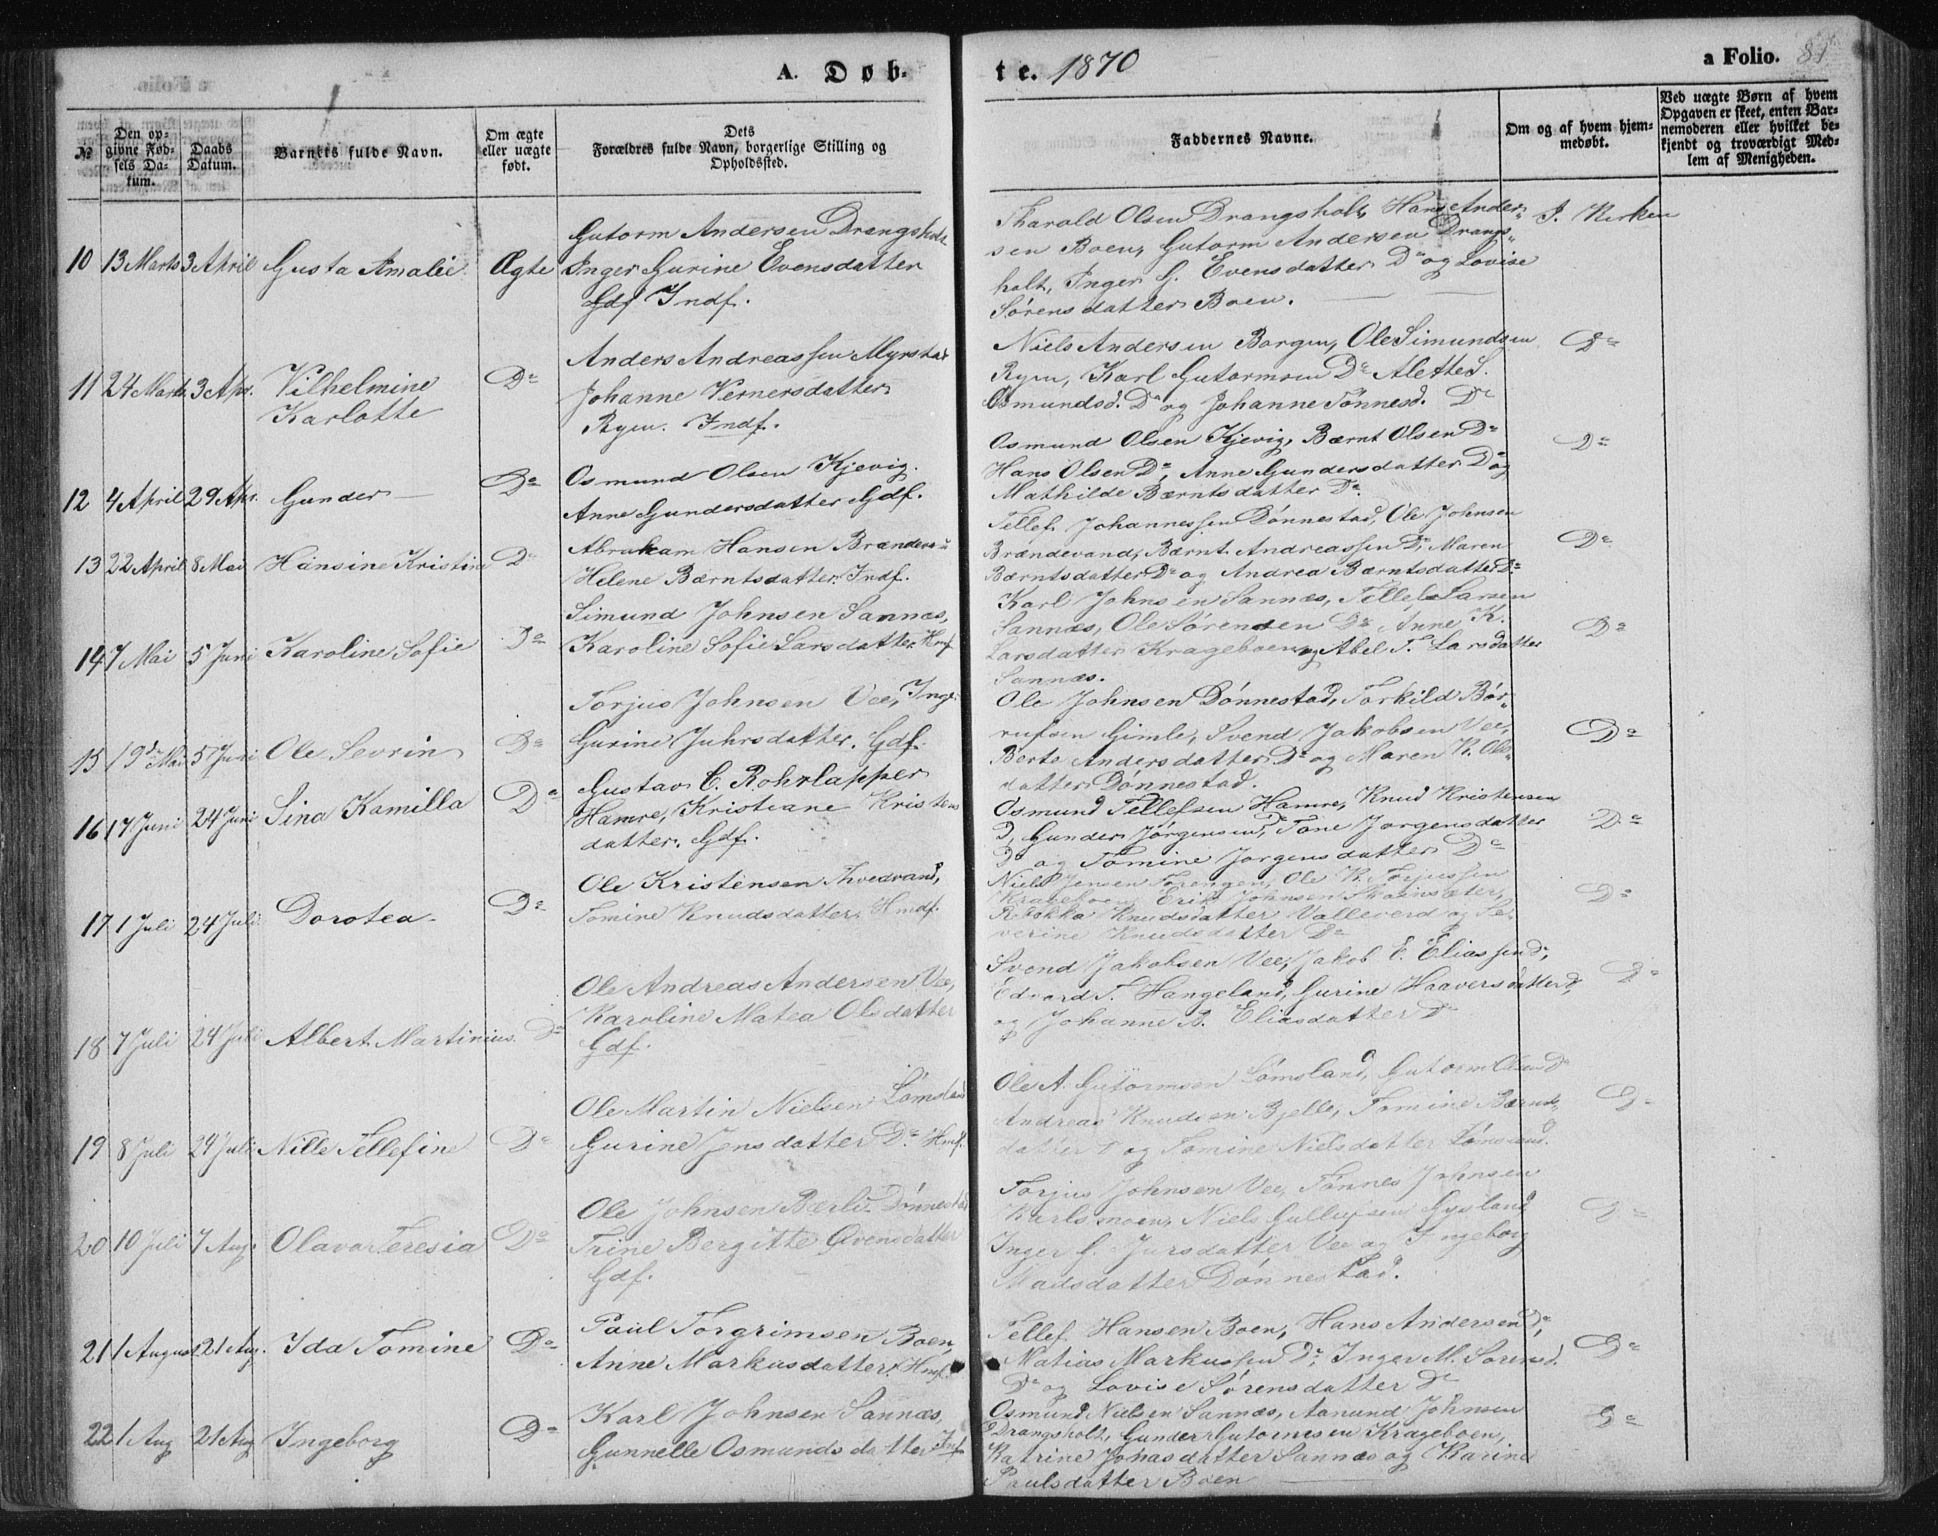 A. Døb-
te. 1870
a Folio. 81
№
Den op-
givne Fød-
sels Da-
tum.
Daabs
Datum.
Barnets fulde Navn.
Om ægte
eller uægte
født.
Dets
Forældres fulde Navn, borgerlige Stilling og
Opholdssted.
Faddernes Navne.
Om og af hvem hjem-
medøbt.
Ved uægte Børn af hvem
Opgaven er skeet, enten Bar-
nemoderen eller hvilket be-
kjendt og troværdigt Med-
lem af Menigheden.
10 13 Marts 3 April Gusta Amalie Ægte
Gutorm Andersen Drangsholt
Inger Gurine Evensdatter
Gdf Indf.
Tharald Olsen Drangsholt, Hans Ander-
sen Boen, Gutorm Andersen Drangs-
holt, Inger G. Evensdatter Do og Lovise
Sørensdatter Boen.
I. Kirken
11 24 Marts 3 Apr. Vilhelmine
Karlotte
Do
Anders Andreassen Myrstad
Johanne Vernersdatter
Ryen. Indf.
Niels Andersen Borgen, Ole Simundsen
Ryen, Karl Gutormsen Do Alette S.
Osmundsd. Do og Johanne Tønnesd. Do
Do
12 4 April 29 Apr. Gunder Do
Osmund Olsen Kjevig.
Anne Gundersdatter Gdf.
Osmund Olsen Kjevig, Bærnt Olsen Do
Hans Olsen Do, Anne Gundersdatter Do og
Mathilde Bærntsdatter Do.
Do
13 22 April 8 Mai Hansine Kristine Do
Abraham Hansen Brændev-
Helene Bærntsdatter. Indf.
Tellef Johannessen Dønnestad, Ole Johnsen
Brændevand, Bærnt Andreassen Do, Maren
Bærntsdatter Do og Andrea Bærntsdatter Do
Do
14 7 Mai 5 Juni Karoline Sofie Do
Simund Johnsen Sannæs,
Karoline Sofie Larsdatter. Hmf
Karl Johnsen Sannæs, Tellef Larsen
Sannæs, Ole Sørensen Do Anne K.
Larsdatter Krageboen og Abel T. Larsdatter
Sannæs.
Do
15 19de Mai 5 Juni Ole Sevrin Do
Torjus Johnsen Vee, Inge-
Gurine Juhrsdatter. Gdf.
Ole Johnsen Dønnestad, Torkild Bør-
rufsen Gimle, Svend Jakobsen Vee,
Berte Andersdatter Do og Maren K. Ols-
datter Dønnestad.
Do
16 17 Juni 24 Juni Sina Kamilla Do
Gustav C. Rohrlapper
Hamre, Kristiane Kristens
datter. Gdf.
Osmund Tellefsen Hamre, Knud Kristensen
D, Gunder Jørgensen Do Tone Jorgensdatter
Do og Tomine Jorgensdatter Do
Do
17 1 Juli 24 Juli. Dorotea. Do
Ole Kristensen Thvedvand,
Tomine Knudsdatter. Hmdf.
Niels Jensen Torengen, Ole K. Torjussen
Krageboen, Erik Johnsen
Knudsdatter Valleverd og Se-
verine Knudsdatter Do
Do
18 7 Juli 24 Juli Albert Martinius. Do
Ole Andreas Andersen Vee,
Karoline Matea Olsdatter
Gdf.
Svend Jakobsen Vee, Jakob E. Eliassen do,
Edvard T. Hangeland, Gurine Haaversdatter d,
og Johanne B. Eliasdatter Do
Do
19 8 Juli 24 Juli Nille Tellefine Do
Ole Martin Nielsen Lømsland
Gurine Jensdatter Do. Hmf.
Ole A. Gutormsen Lømsland, Gutorm Olsen Do
Andreas Knudsen Bjelle, Tomine Bærnds
datter D og Tomine Nielsdatter Lømsland.
Do
20 10 Juli 7 Aug. Olava Teresia Do
Ole Johnsen Bærli Dønnestad
Trine Bergitte Evensdatter
Gdf.
Torjus Johnsen Vee, Tønnes Johnsen
Karlsmoen, Niels Gullufsen Gysland
Inger G. Jursdatter Vee og Ingeborg
Madsdatter Dønnestad.
Do
21 1 August 21 Aug. Ida Tomine Do
Paul Torgrimsen Boen,
Anne Markusdatter. Hmf.
Tellef Hansen Boen, Hans Andersen Do,
Matias Markussen Do, Inger M. Sørensd.
Do og Lovise Sørensdatter Do
Do
22 1 Aug 21 Aug Ingeborg Do
Karl Johnsen Sannæs,
Gunnelle Osmundsdatter Inf
Osmund Nielsen Sannæs, Aanund Johnsen
Drangsholt, Gunder Gutormsen Krageboen,
Katrine Jonasdatter Sannæs og Karine
Paulsdatter Boen
Do